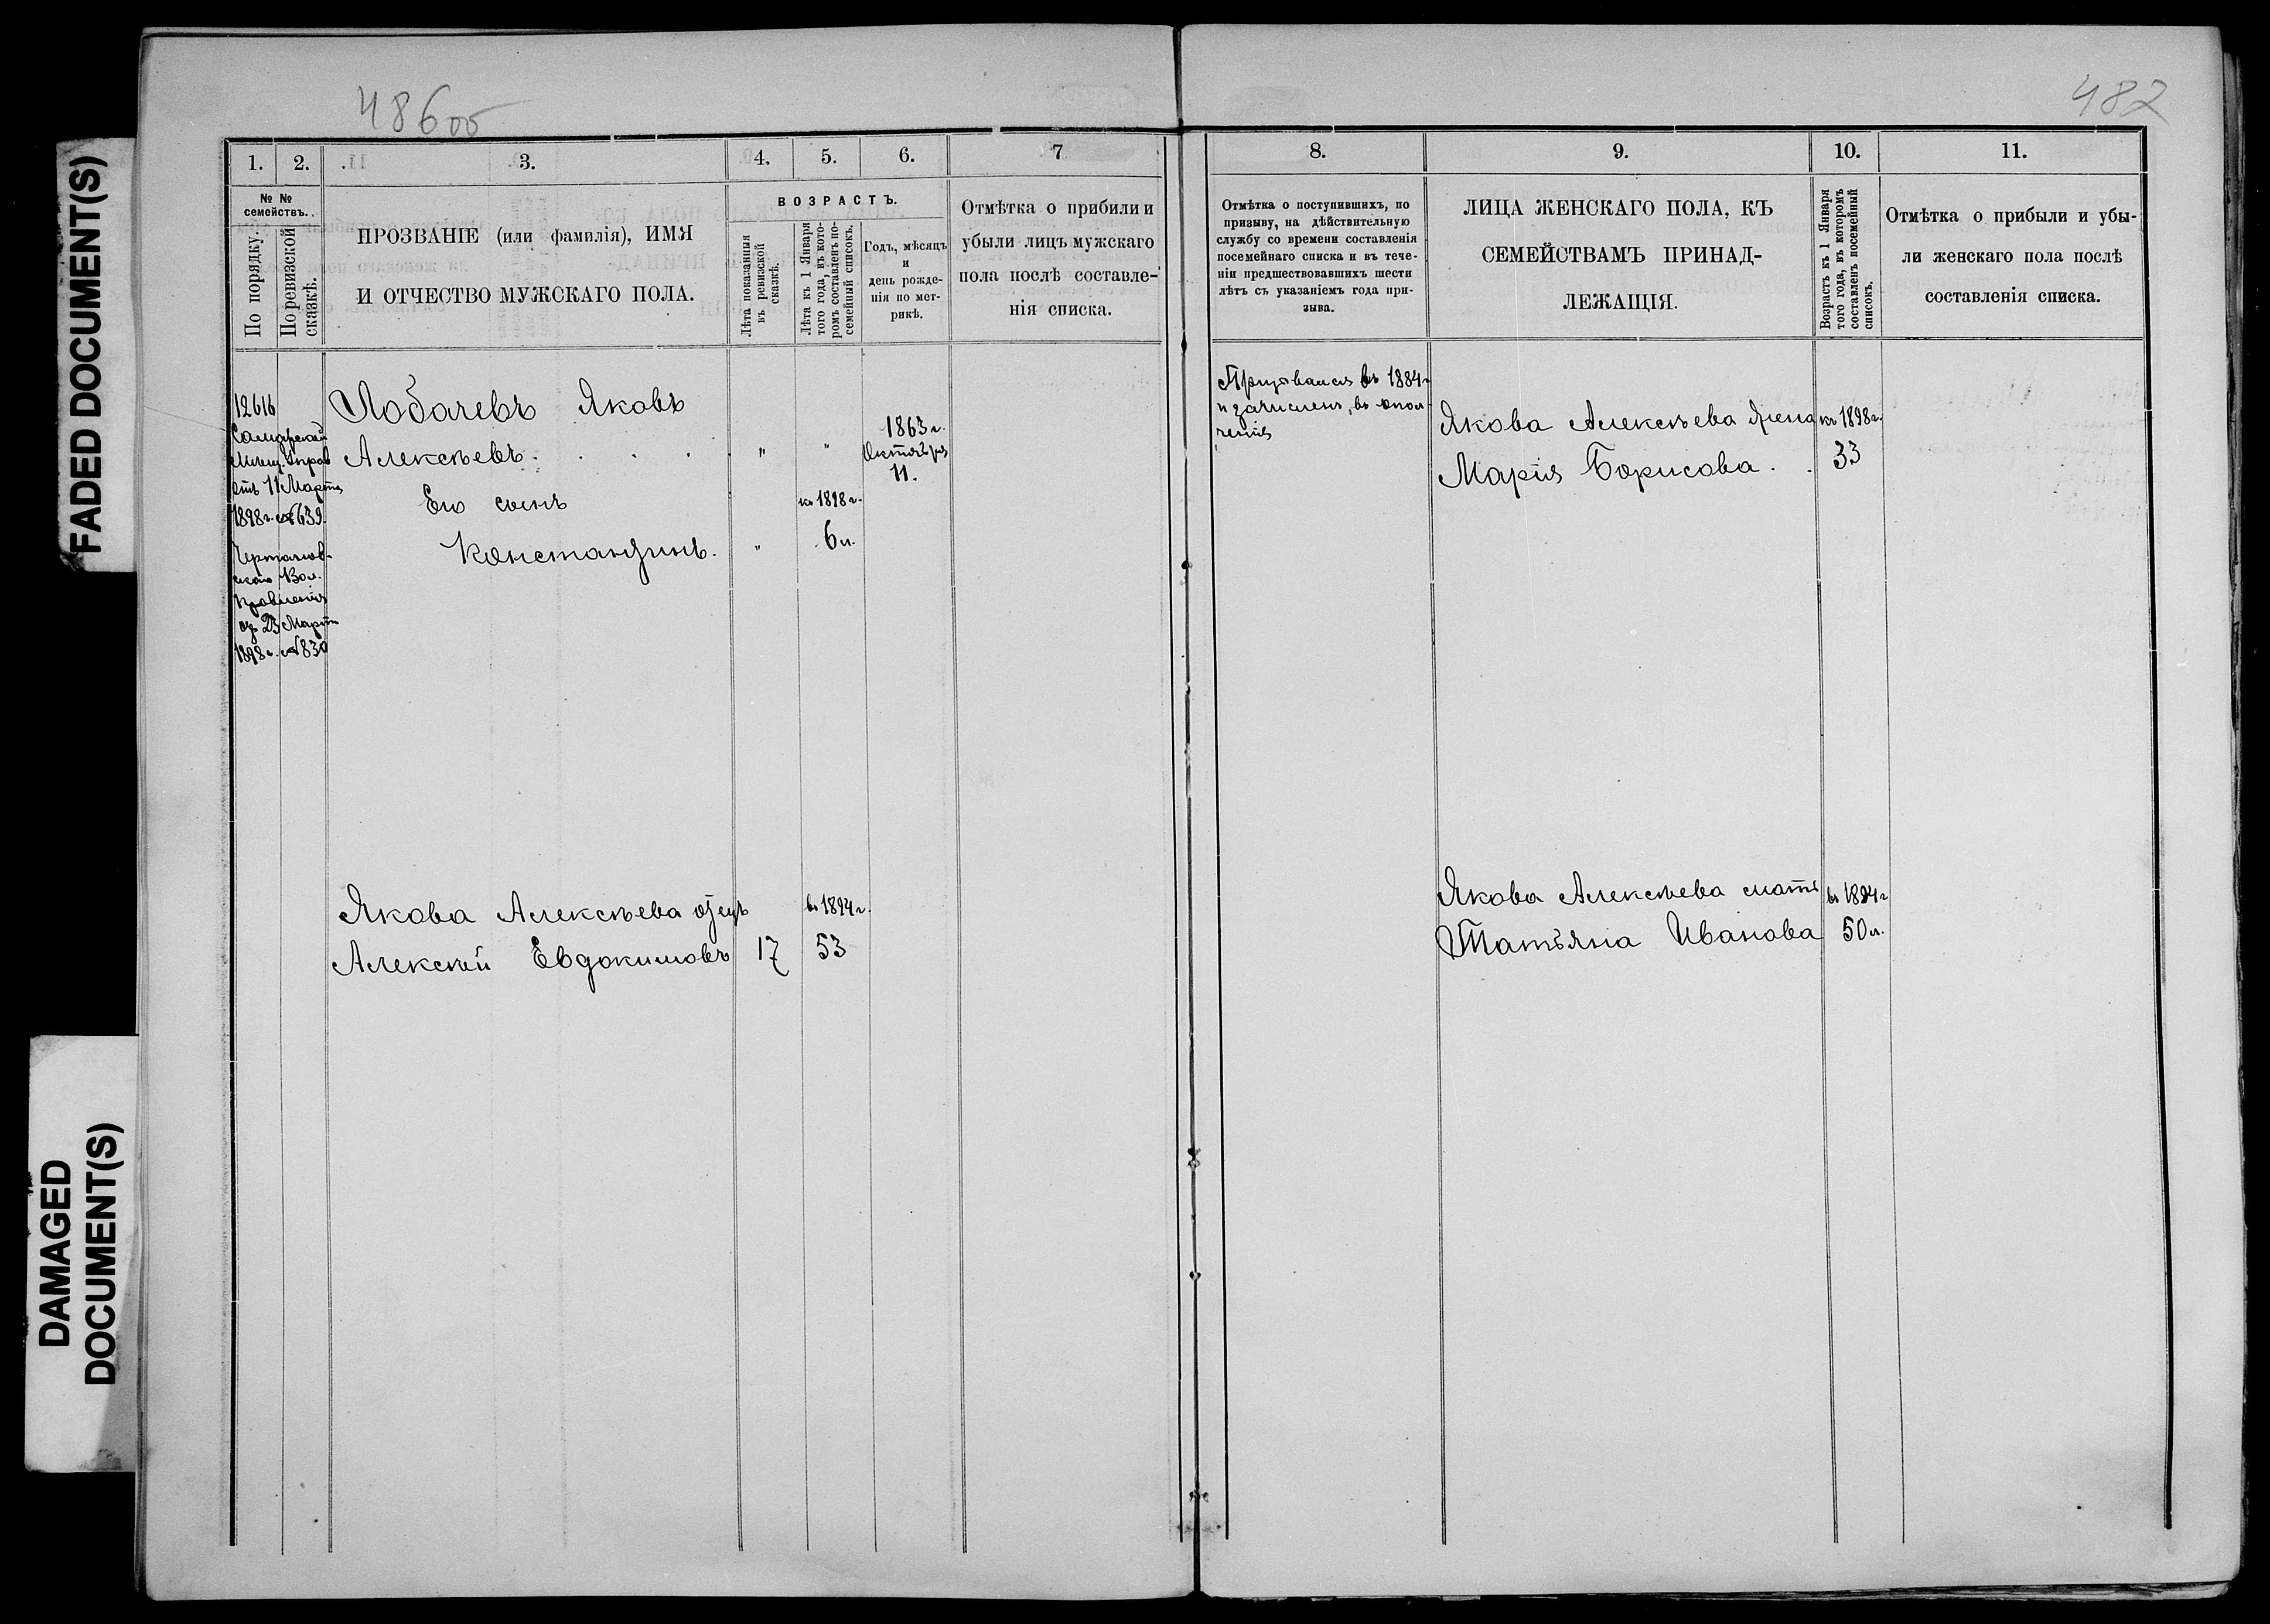 FADED DOCUMENT(S)
DAMAGED
DOCUMENT(S)
486об
1. 2. 3. 4. 5. 6. 7
№ №
семействъ.
По порядку.
По ревизской
сказкѣ.
ПРОЗВАНІЕ (или фамилія), ИМЯ
И ОТЧЕСТВО МУЖСКАГО ПОЛА.
ВОЗРАСТЪ.
Лѣта показанныя
въ ревизской
сказкѣ.
Лѣта къ 1 Января
того года, въ кото-
ромъ составленъ по-
семейный списокъ.
Годъ, мѣсяцъ
и
день рожде-
нія по мет-
рикѣ.
Отмѣтка о прибили и
убыли лицъ мужскаго
пола послѣ составле-
нія списка.
12616
Самарской
Мѣщ. Управ
отъ 11 Марта
1898 г. № 639.
Вол.
Правленія
от 23 Марта
1898 г. № 830
Лобачевъ Яковъ
Алексѣевъ. . . . . " "
1863 г.
Октября
11.
Его сынъ
къ 1898 г.
Константинъ. " 6 л.
Якова Алексѣева отецъ
въ 1894 г.
Алексѣй Евдокимовъ 17 53
482
8. 9. 10. 11.
Отмѣтка о поступившихъ, по
призыву, на дѣйствительную
службу со времени составленія
посемейнаго списка и въ тече-
ніи предшествовавшихъ шести
лѣтъ съ указаніемъ года при-
зыва.
ЛИЦА ЖЕНСКАГО ПОЛА, КЪ
СЕМЕЙСТВАМЪ ПРИНАД-
ЛЕЖАЩІЯ.
Возрастъ къ 1 Января
того года, въ которомъ
составленъ посемейный
списокъ.
Отмѣтка о прибыли и убы-
ли женскаго пола послѣ
составленія списка.
Призывался въ 1884 г
и зачисленъ, въ опол
ченіе
Якова Алексѣева жена къ 1898 г.
Марія Борисова. . 33
Якова Алексѣева мать въ 1894 г
Татьяна Иванова 50 л.